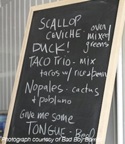 SCALLOP
CEVICHE over
mixed
greens
DUCK!
TACO TRIO - MIX
tacos w/ rice & beans
Nopales - cactus
& poblano
Give me some
TONGUE - Beef
Photograph courtesy of Bad Boy